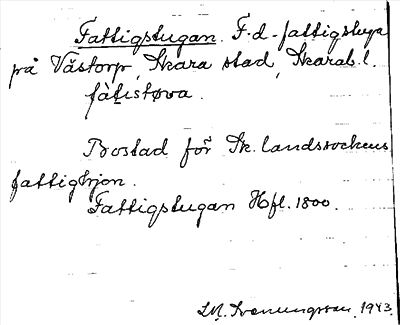 Fattigstugan. F.d. fattigstuga
på Västorp, Skara stad, Skarab. l.
fàtistøva.
Bostad för Sk. landsockens
fattighjon.
Fattigstugan Hfl. 1800.
S.M. Svenungsson. 1943.